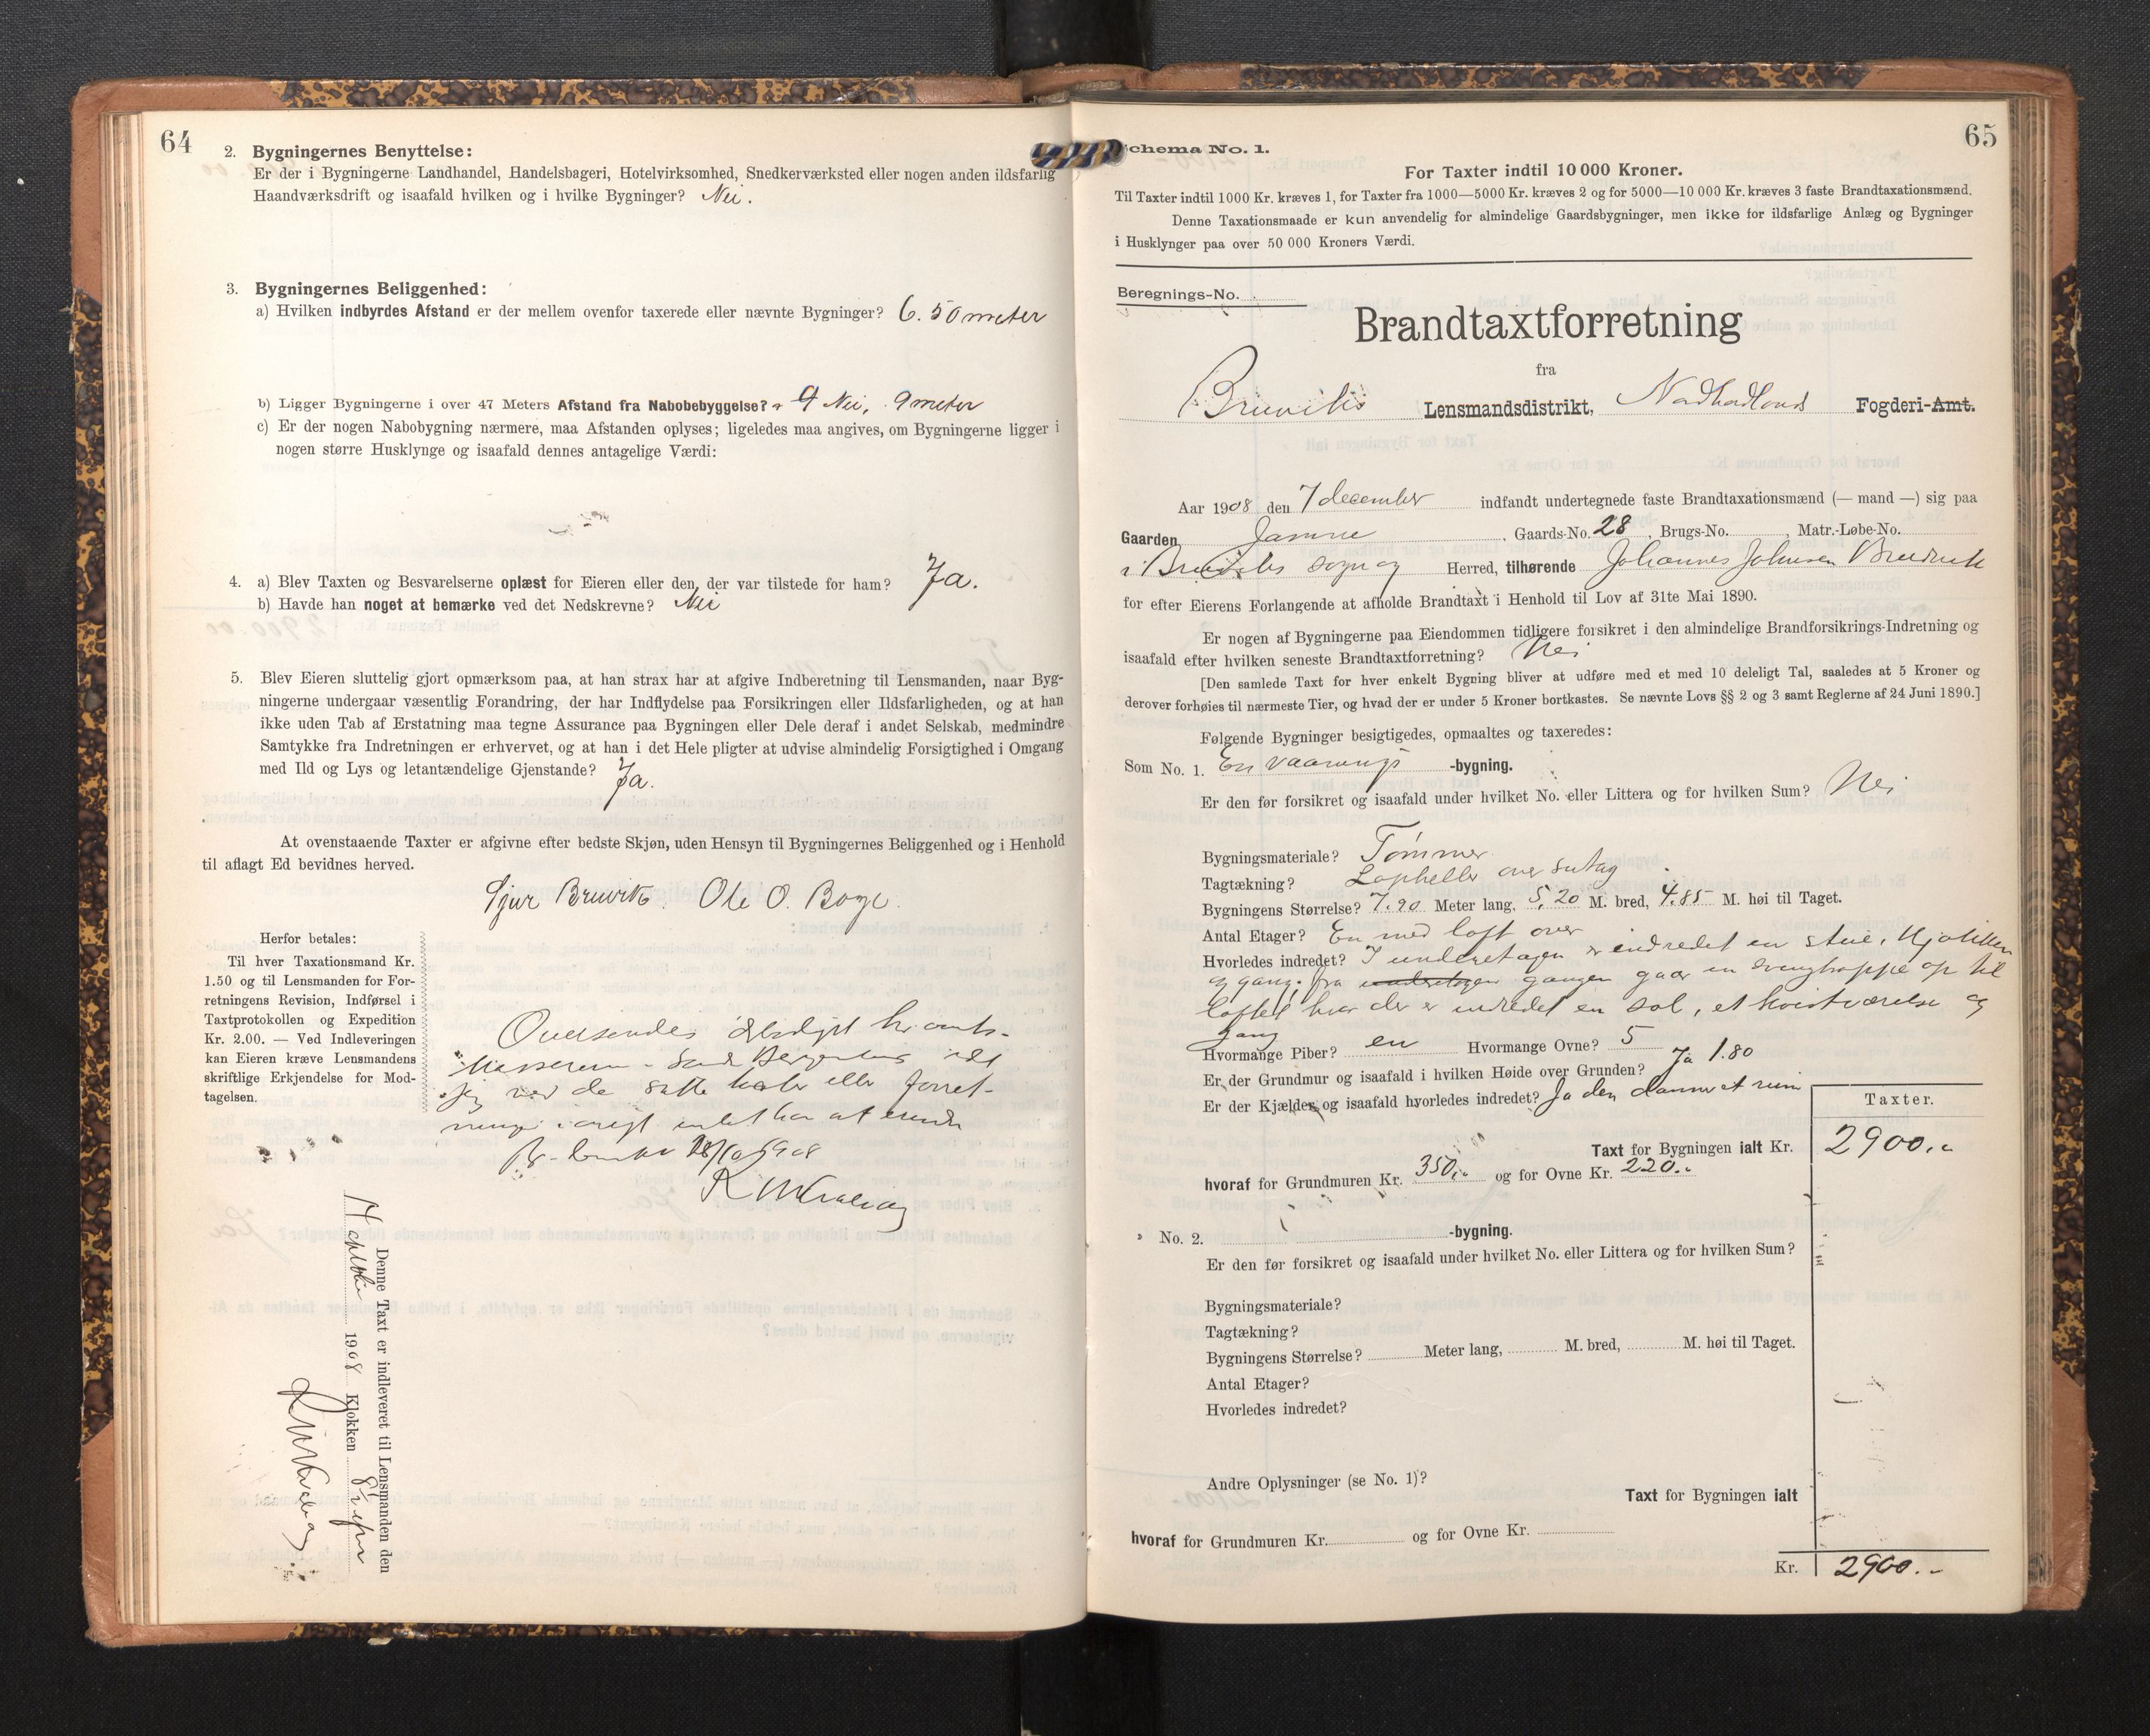 64
2. Bygningernes Benyttelse:
Er der i Bygningerne Landhandel, Handelsbageri, Hotelvirksomhed, Snedkerværksted eller nogen anden ildsfarlig
Haandværksdrift og isaafald hvilken og i hvilke Bygninger? Nei.
3. Bygningernes Beliggenhed:
a) Hvilken indbyrdes Afstand er der mellem ovenfor taxerede eller nævnte Bygninger? 6.50 meter
b) Ligger Bygningerne i over 47 Meters Afstand fra Nabobebyggelse? Nei, 9 meter
c) Er der nogen Nabobygning nærmere, maa Afstanden oplyses; ligeledes maa angives, om Bygningerne ligger i
nogen større Husklynge og isaafald dennes antagelige Værdi:
4. a) Blev Taxten og Besvarelserne oplæst for Eieren eller den, der var tilstede for ham? Ja.
b) Havde han noget at bemærke ved det Nedskrevne? Nei
5. Blev Eieren sluttelig gjort opmærksom paa, at han strax har at afgive Indberetning til Lensmanden, naar Byg-
ningerne undergaar væsentlig Forandring, der har Indflydelse paa Forsikringen eller Ildsfarligheden, og at han
ikke uden Tab af Erstatning maa tegne Assurance paa Bygningen eller Dele deraf i andet Selskab, medmindre
Samtykke fra Indretningen er erhvervet, og at han i det Hele pligter at udvise almindelig Forsigtighed i Omgang
med Ild og Lys og letantændelige Gjenstande? Ja.
At ovenstaaende Taxter er afgivne efter bedste Skjøn, uden Hensyn til Bygningernes Beliggenhed og i Henhold
til aflagt Ed bevidnes herved.
Sjur Bruvik. Ole O. Boge.
Herfor betales:
Til hver Taxationsmand Kr.
1.50 og til Lensmanden for For-
retningens Revision, Indførsel i
Taxtprotokollen og Expedition
Kr. 2.00. — Ved Indleveringen
kan Eieren kræve Lensmandens
skriftlige Erkjendelse for Mod-
tagelsen.
Oversendes
jeg ved de satte eller forret-
1908
Denne Taxt er indleveret til Lensmanden den
1908 Klokken
65
Schema No. 1.
For Taxter indtil 10 000 Kroner.
Til Taxter indtil 1000 Kr. kræves 1, for Taxter fra 1000—5000 Kr. kræves 2 og for 5000—10 000 Kr. kræves 3 faste Brandtaxationsmænd.
Denne Taxationsmaade er kun anvendelig for almindelige Gaardsbygninger, men ikke for ildsfarlige Anlæg og Bygninger
i Husklynger paa over 50 000 Kroners Værdi.
Beregnings-No.
Brandtaxtforretning
fra
Bruviks Lensmandsdistrikt, Nordhordlands Fogderi-Amt.
Aar 1908 den 7 december indfandt undertegnede faste Brandtaxationsmænd (— mand —) sig paa
Gaarden Jamne, Gaards-No. 28, Brugs-No. , Matr.-Løbe-No.
i Bruviks sogn og Herred, tilhørende Johannes Johnsen Bruvik
for efter Eierens Forlangende at afholde Brandtaxt i Henhold til Lov af 31te Mai 1890.
Er nogen af Bygningerne paa Eiendommen tidligere forsikret i den almindelige Brandforsikrings-Indretning og
isaafald efter hvilken seneste Brandtaxtforretning? Nei
[Den samlede Taxt for hver enkelt Bygning bliver at udføre med et med 10 deleligt Tal, saaledes at 5 Kroner og
derover forhøies til nærmeste Tier, og hvad der er under 5 Kroner bortkastes. Se nævnte Lovs §§ 2 og 3 samt Reglerne af 24 Juni 1890.]
Følgende Bygninger besigtigedes, opmaaltes og taxeredes:
Som No. 1. En vaanings -bygning.
Er den før forsikret og isaafald under hvilket No. eller Littera og for hvilken Sum? Nei
Bygningsmateriale? Tømmer
Tagtækning? Lapheller over sutag
Bygningens Størrelse? 7.90 Meter lang, 5,20 M. bred, 4.85 M. høi til Taget.
Antal Etager? En med loft over
Hvorledes indredet? I underetagen er indredet en stue, Kjøkken
og gang, fra underetagen gangen gaar en svingtrappe op til
loftet hvor der er indredet en sal, et kvistværelse og
gang
Hvormange Piber? en Hvormange Ovne? 5
Er der Grundmur og isaafald i hvilken Høide over Grunden? Ja 1.80
Er der Kjælder og isaafald hvorledes indredet? Ja den danner et rum
Taxter.
Taxt for Bygningen ialt Kr. 2900.-
hvoraf for Grundmuren Kr. 350,- og for Ovne Kr. 220.-
No. 2. -bygning.
Er den før forsikret og isaafald under hvilket No. eller Littera og for hvilken Sum?
Bygningsmateriale?
Tagtækning?
Bygningens Størrelse? Meter lang, M. bred, M. høi til Taget.
Antal Etager?
Hvorledes indredet?
Andre Oplysninger (se No. 1)?
Taxt for Bygningen ialt
hvoraf for Grundmuren Kr. og for Ovne Kr.
Kr. 2900.-